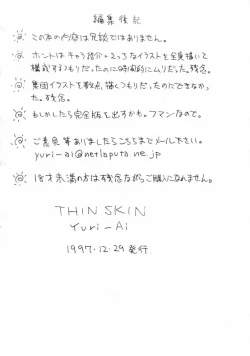 編集後記
この本の内容は冗談ではありません。
ホントはキャラ紹介+えっちなイラストを全員描いて
構成するつもりだったのに時間的にムリだった。残念。
集団イラストを数点、描くつもりだったのにできなかっ
た。残念。
もしかしたら完全版を出すかも。フマンなので。
ご意見等ありましたらこちらまでメール下さい。
yuri-ai@netlaputa.ne.jp
18才未満の方は残念ながらご購入になれません。
THIN SKIN
Yuri-Ai
1997.12.29発行